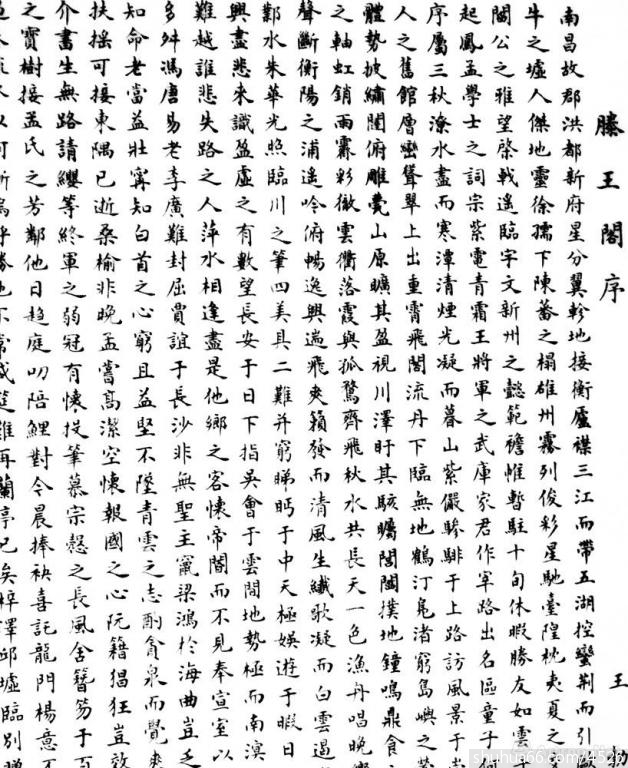 滕王閣序
王
南昌故郡洪都新府星分翼軫地接衡廬襟三江而帶五湖控蠻荊而引
牛之墟人傑地靈徐孺下陳蕃之榻雄州霧列俊彩星馳臺隍枕夷夏之
閻公之雅望棨戟遙臨宇文新州之懿範襜帷暫駐十旬休暇勝友如雲
起鳳孟學士之詞宗紫電青霜王將軍之武庫家君作宰路出名區童子
序屬三秋潦水盡而寒潭清煙光凝而暮山紫儼驂騑于上路訪風景于
人之舊館層巒聳翠上出重霄飛閣流丹下臨無地鶴汀鳧渚窮島嶼之
體勢披繡闥俯雕甍山原曠其盈視川澤盱其駭矚閭閻撲地鐘鳴鼎食
之軸虹銷雨霽彩徹雲衢落霞與孤鶩齊飛秋水共長天一色漁舟唱晚
聲斷衡陽之浦遙吟俯暢逸興遄飛爽籟發而清風生纖歌凝而白雲遏
鄴水朱華光照臨川之筆四美具二難并窮睇眄于中天極娛遊于暇日
興盡悲來識盈虛之有數望長安于日下指吳會于雲間地勢極而南溟
難越誰悲失路之人萍水相逢盡是他鄉之客懷帝閽而不見奉宣室以
多舛馮唐易老李廣難封屈賈誼于長沙非無聖主竄梁鴻於海曲豈乏
知命老當益壯寧知白首之心窮且益堅不墜青雲之志酌貪泉而覺爽
扶搖可接東隅已逝桑榆非晚孟嘗高潔空懷報國之心阮籍猖狂豈效
介書生無路請纓等終軍之弱冠有懷投筆慕宗愨之長風舍簪笏于百
之寶樹接孟氏之芳鄰他日趨庭叨陪鯉對今晨捧袂喜託龍門楊意不
勝地不常盛筵難再蘭亭已矣梓澤邱墟臨別贈
shuhua66.com/4526